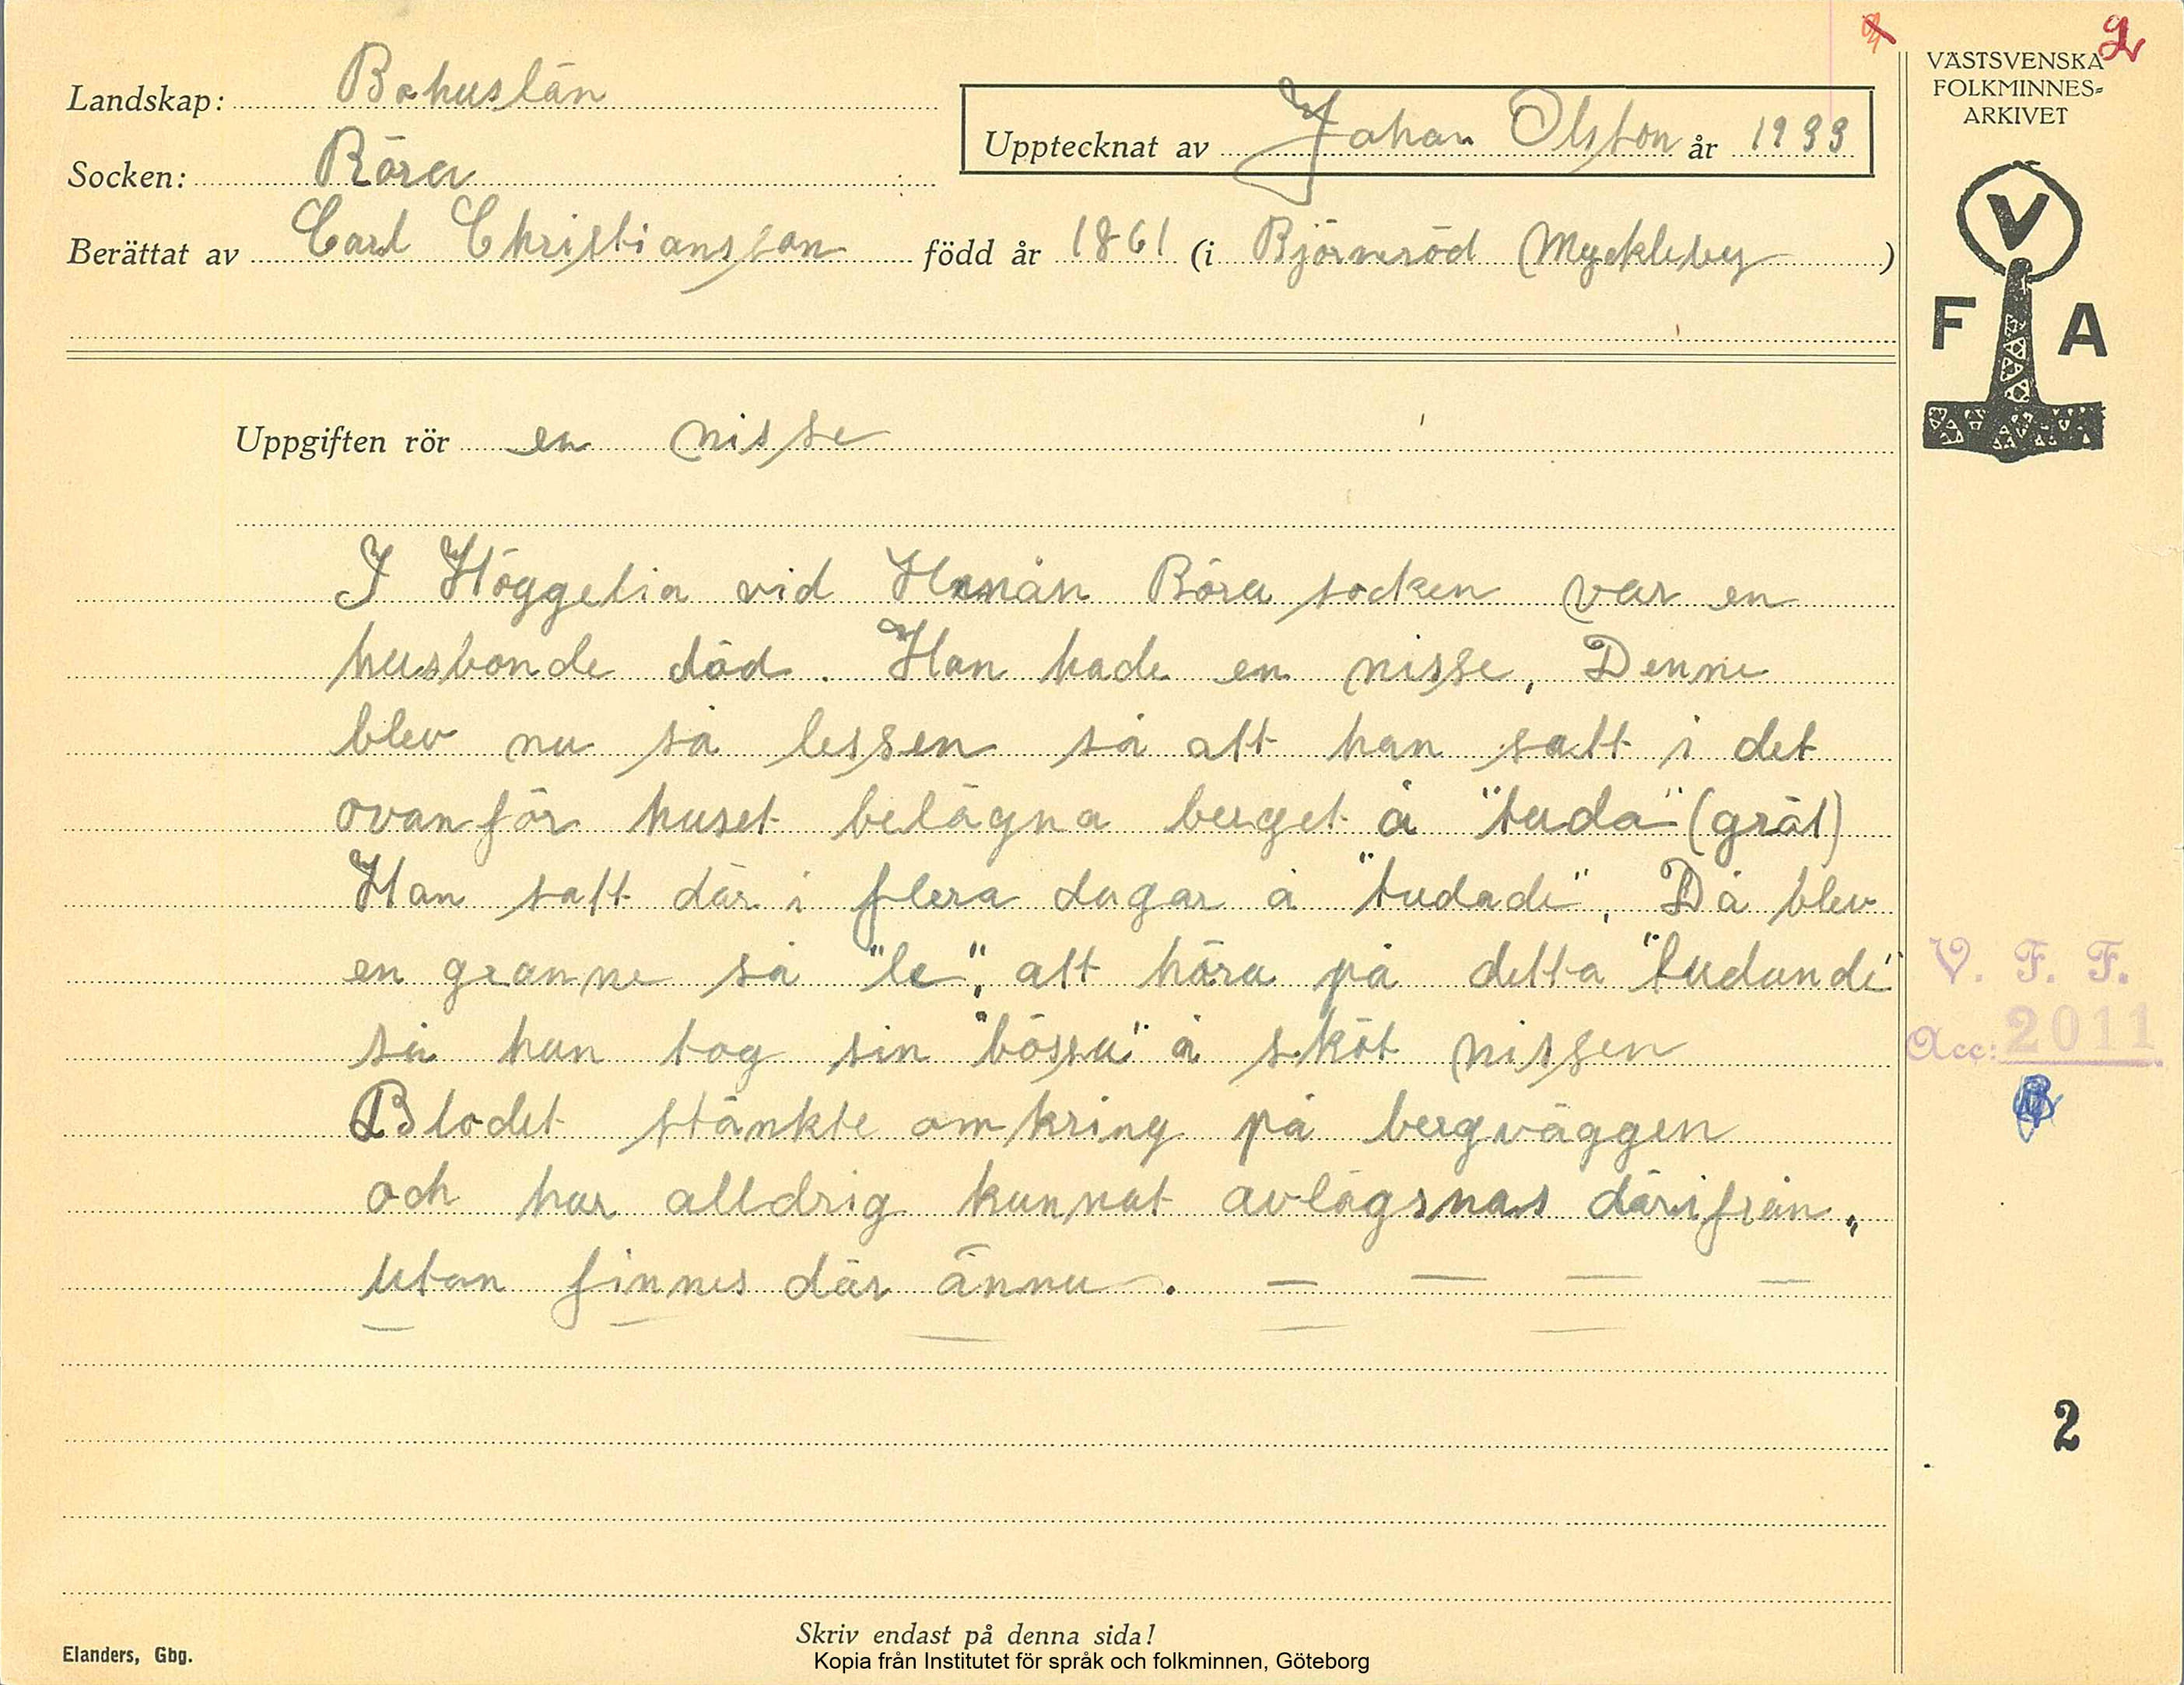 VÄSTSVENSKA
FOLKMINNES-
ARKIVET
2
Landskap: Bohuslän
Upptecknat av Johan Olsson år 1933
Socken: Röra
Berättat av Carl Christiansson född år 1861 (i Björnröd Myckleby)
V
F A
Uppgiften rör en nisse
I Höggelia vid Henån Röra socken var en
husbonde död. Han hade en nisse, Denne
blev nu så lessen så att han satt i det
ovanför huset belägna berget å "tuda" (grät)
Han satt där i flera dagar å "tudade", Då blev
en granne så "le", att höra på detta "tudande"
så han tog sin "bössa" å sköt nissen
Blodet stänkte omkring på bergväggen
och har alldrig kunnat avlägsnas därifrån,
utan finnes där ännu. — — — —
— — — — —
V. F. F.
Acc: 2011
2
Skriv endast på denna sida!
Elanders, Gbg.
Kopia från Institutet för språk och folkminnen, Göteborg